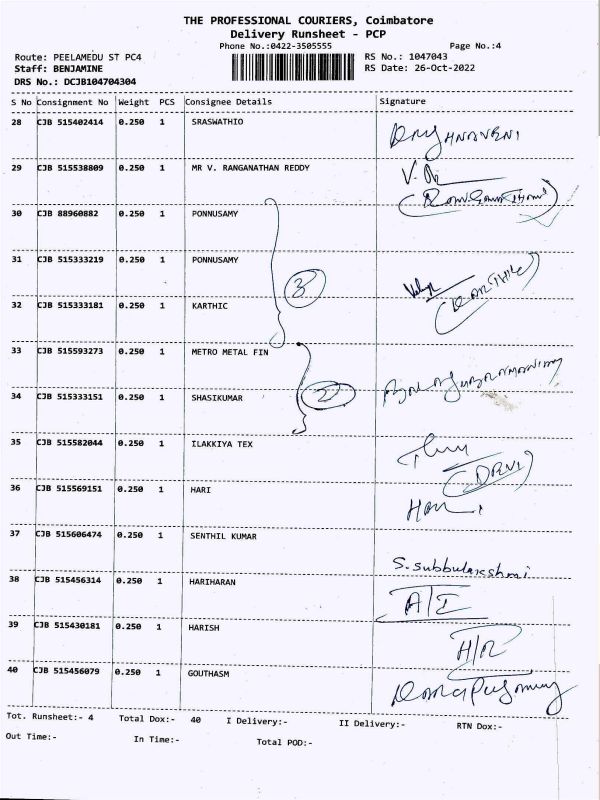 THE PROFESSIONAL COURIERS, Coimbatore
Delivery Runsheet - PCP
Phone No.:0422-3505555 Page No.:4
Route: PEELAMEDU ST PC4 RS No.: 1047043
Staff: BENJAMINE RS Date: 26-Oct-2022
DRS No.: DCJB104704304
S No Consignment No Weight PCS Consignee Details Signature
28 CJB 515402414 0.250 1 SRASWATHIO
29 CJB 515538809 0.250 1 MR V. RANGANATHAN REDDY
30 CJB 88960882 0.250 1 PONNUSAMY
31 CJB 515333219 0.250 1 PONNUSAMY
3
(KARTHIK)
32 CJB 515333181 0.250 1 KARTHIC
33 CJB 515593273 0.250 1 METRO METAL FIN
34 CJB 515333151 0.250 1 SHASIKUMAR
2
35 CJB 515582044 0.250 1 ILAKKIYA TEX
(DEVI)
36 CJB 515569151 0.250 1 HARI
Hari
37 CJB 515606474 0.250 1 SENTHIL KUMAR
S. subbulakshmi
38 CJB 515456314 0.250 1 HARIHARAN
A/I
39 CJB 515430181 0.250 1 HARISH
H/R
40 CJB 515456079 0.250 1 GOUTHASM
Tot. Runsheet:- 4 Total Dox:- 40 I Delivery:- II Delivery:- RTN Dox:-
Out Time:- In Time:- Total POD:-